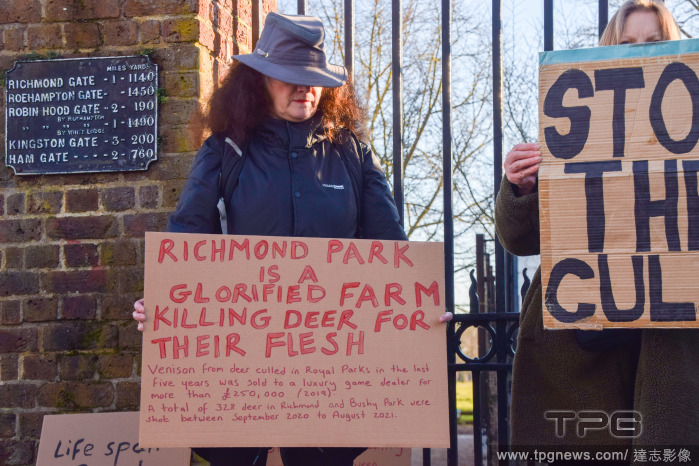 MILES YARDS
RICHMOND GATE - 1 - 1140
ROEHAMPTON GATE - 1450
ROBIN HOOD GATE - 2 - 190
BY ROEHAMPTON
" " " - 1 - 1490
BY WHITE LODGE
KINGSTON GATE - 3 - 200
HAM GATE - 2 - 760
RICHMOND PARK
IS A
GLORIFIED FARM
KILLING DEER FOR
THEIR FLESH
Venison from deer culled in Royal Parks in the last
five years was sold to a luxury game dealer for
more than £250,000 (2019).
A total of 328 deer in Richmond and Bushy Park were
shot between September 2020 to August 2021.
STO
TH
CUL
Life span
TPG
www.tpgnews.com/ 達志影像